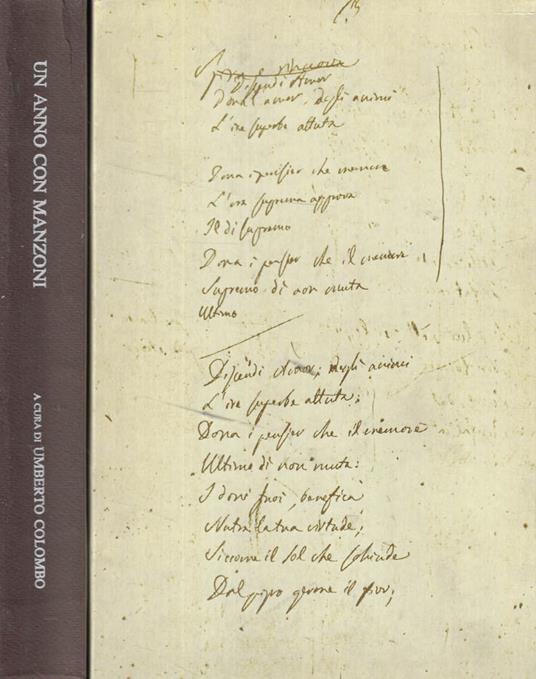 UN ANNO CON MANZONI
A CURA DI UMBERTO COLOMBO
Discendi Amor
Dona l'amor, degli animi
L'ire superbe attuta
Dona i pensier che
L'ora suprema approva
Il dì supremo
Dona i pensier che il memore
Supremo dì non muta
Ultimo
Discendi Amor; negli animi
L'ire superbe attuta;
Dona i pensier che il memore
Ultimo dì non muta:
I doni tuoi, benefica
Nutra la tua virtude;
Siccome il sol che schiude
Dal pigro germe il fior;